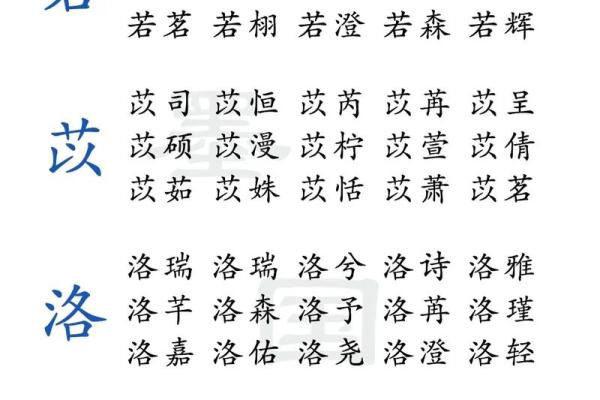 若
若茗 若栩 若澄 若森 若辉
苡
苡司 苡恒 苡芮 苡苒 苡呈
苡硕 苡漫 苡柠 苡萱 苡倩
苡茹 苡姝 苡恬 苡萧 苡茗
洛
洛瑞 洛瑞 洛兮 洛诗 洛雅
洛芊 洛森 洛予 洛苒 洛瑾
洛嘉 洛佑 洛尧 洛澄 洛轻
墨
国